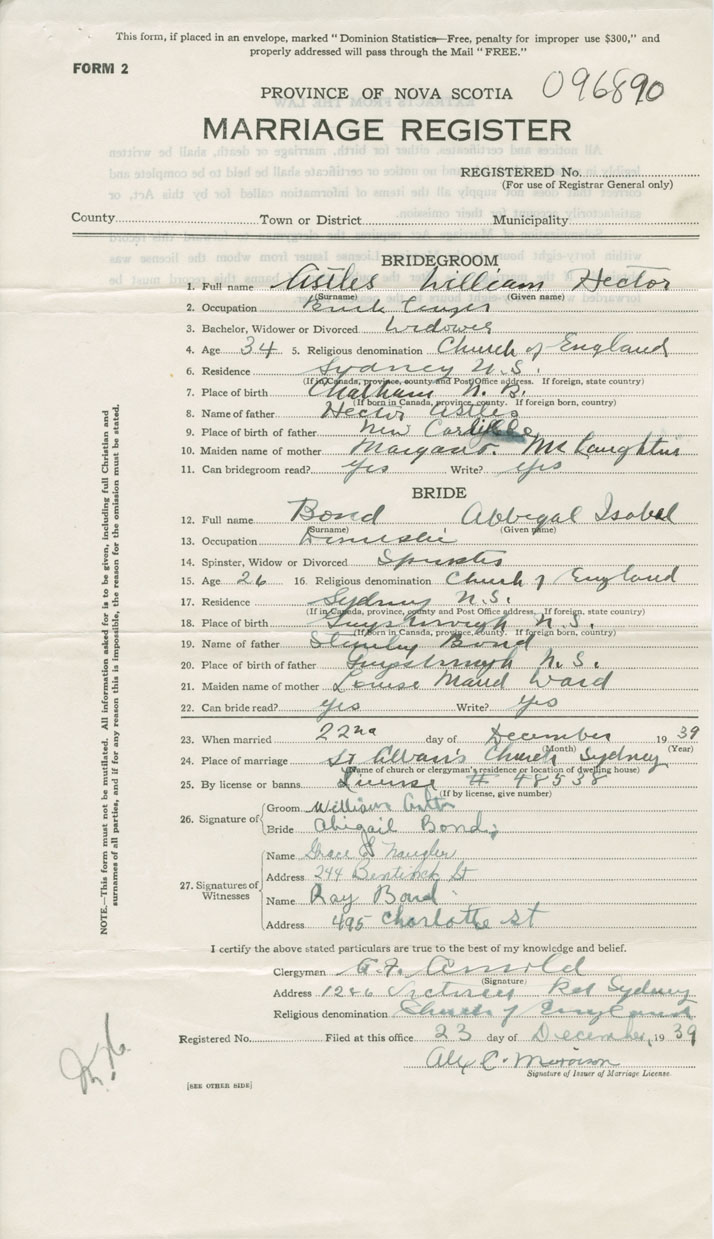 This form, if placed in an envelope, marked "Dominion Statistics—Free, penalty for improper use $300," and
properly addressed will pass through the Mail "FREE."
FORM 2
PROVINCE OF NOVA SCOTIA 096890
MARRIAGE REGISTER
REGISTERED No.
(For use of Registrar General only)
County Town or District Municipality
BRIDEGROOM
1. Full name Astles William Hector
(Surname) (Given name)
2. Occupation
3. Bachelor, Widower or Divorced Widower
4. Age 34 5. Religious denomination Church of England
6. Residence Sydney N.S.
(If in Canada, province, county and Post Office address. If foreign, state country)
7. Place of birth Chatham N. B.
(If born in Canada, province, county. If foreign born, country)
8. Name of father Hector Astles
9. Place of birth of father New Carlisle
10. Maiden name of mother Margaret McLaughlin
11. Can bridegroom read? yes Write? yes
BRIDE
12. Full name Bond Abbigal Isobel
(Surname) (Given name)
13. Occupation Domestic
14. Spinster, Widow or Divorced Spinster
15. Age 26 16. Religious denomination Church of England
17. Residence Sydney N.S.
(If in Canada, province, county and Post Office address. If foreign, state country)
18. Place of birth Guysborough N.S.
(If born in Canada, province, county. If foreign born, country)
19. Name of father Stanley Bond
20. Place of birth of father Guysborough N.S.
21. Maiden name of mother Louise Maud Ward
22. Can bride read? yes Write? yes
23. When married 22nd day of December 1939
(Month) (Year)
24. Place of marriage St Alban's Church Sydney
(Name of church or clergyman's residence or location of dwelling house)
25. By license or banns License # 48538
(If by license, give number)
26. Signature of
Groom William
Bride Abigail Bond
27. Signatures of Witnesses
Name Grace
Address 244 Bentinck St
Name Ray Bond
Address 495 Charlotte St
I certify the above stated particulars are true to the best of my knowledge and belief.
Clergyman A.F. Arnold
(Signature)
Address 1246 Victoria Rd Sydney
Religious denomination Church of England
Registered No. Filed at this office 23 day of December, 1939
Alex C. Morrison
Signature of Issuer of Marriage License.
[SEE OTHER SIDE]
NOTE.—This form must not be mutilated. All information asked for is to be given, including full Christian and
surnames of all parties, and if for any reason this is impossible, the reason for the omission must be stated.